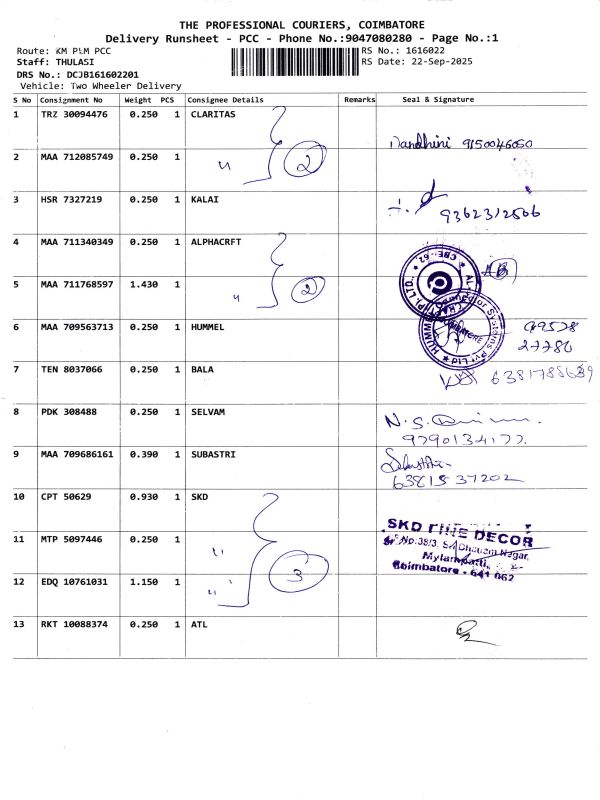 THE PROFESSIONAL COURIERS, COIMBATORE
Delivery Runsheet - PCC - Phone No.:9047080280 - Page No.:1
Route: KM PLM PCC RS No.: 1616022
Staff: THULASI RS Date: 22-Sep-2025
DRS No.: DCJB161602201
Vehicle: Two Wheeler Delivery
S No Consignment No Weight PCS Consignee Details Remarks Seal & Signature
1 TRZ 30094476 0.250 1 CLARITAS
Nandhini 9150046050
2 MAA 712085749 0.250 1 " 2
3 HSR 7327219 0.250 1 KALAI
9362312506
4 MAA 711340349 0.250 1 ALPHACRFT
CBE-62.
5 MAA 711768597 1.430 1 " 2
6 MAA 709563713 0.250 1 HUMMEL 99578
27780
7 TEN 8037066 0.250 1 BALA
6381788639
8 PDK 308488 0.250 1 SELVAM
9790134177.
9 MAA 709686161 0.390 1 SUBASTRI
6381537202
10 CPT 50629 0.930 1 SKD
SKD FINE DECOR
11 MTP 5097446 0.250 1 "
Mylampatti,
Coimbatore - 641 062
12 EDQ 10761031 1.150 1 " 3
13 RKT 10088374 0.250 1 ATL